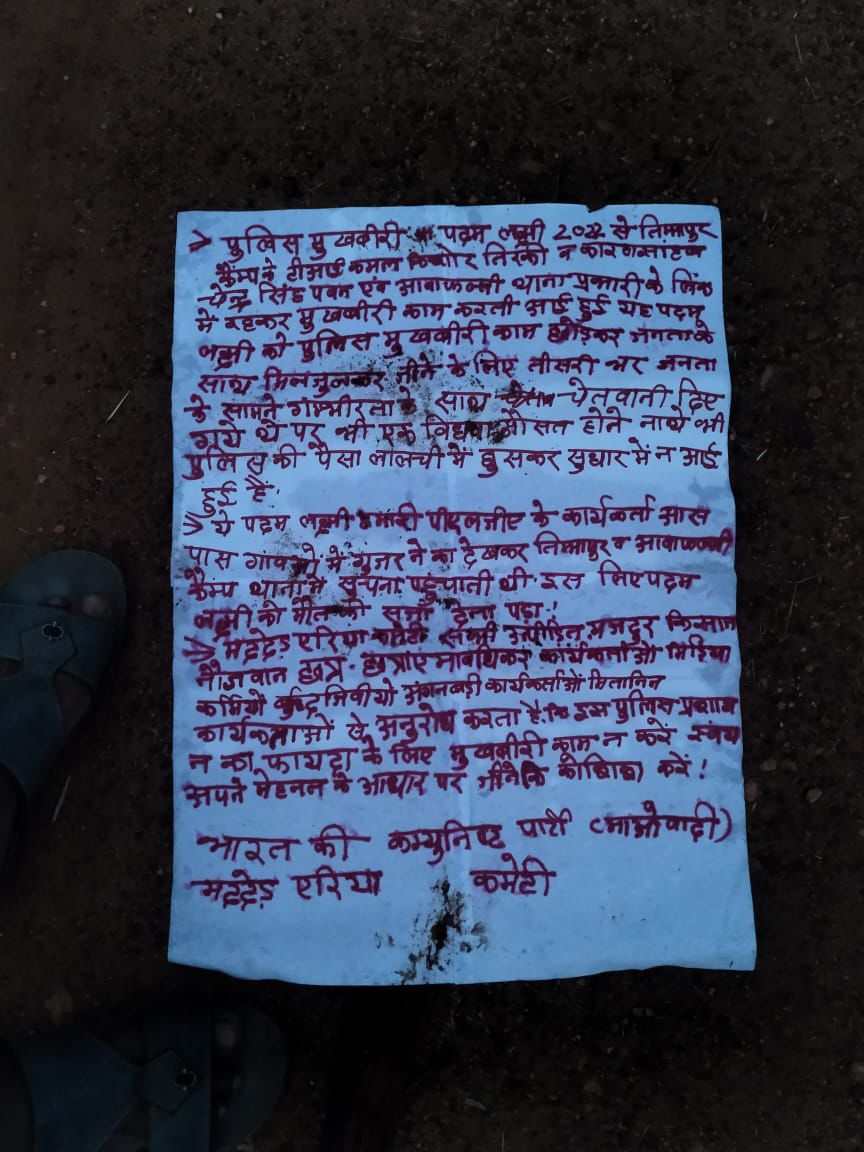 → पुलिस मुखबीरी पदम लक्ष्मी 2022 से तिमापुर
कैम्प के टीआई कमल किशोर तिर्की व
चेन्द्र सिंह पवन एवं आवापल्ली थाना प्रभारी के लिंक
में रहकर मुखबीरी काम करती आई हुई यह पदम
लक्ष्मी को पुलिस मुखबीरी काम छोड़कर जनता के
साथ मिलजुलकर जीने के लिए तीसरी भर जनता
के सामने गम्भीरता के साथ चेतवानी दिए
गये थे पर भी एक विधवा औसत होने नाथे भी
पुलिस की पैसा लालची में घुसकर सुधार में न आई
हुई हैं.
→ ये पदम लक्ष्मी हमारी पीएलजीए के कार्यकर्ता आस
पास गांवओ में गुजरने का देखकर तिमापुर व आवापल्ली
कैम्प थाना में सुचना पहुचाती थी इस लिए पदम
लक्ष्मी को मौत की सजा देना पड़ा!
→ मद्देड़ एरिया कमेटी सभी उत्पीड़ित मजदुर किसान
नौजवान छात्र-छात्राएं मावधिकर कार्यकर्ताओं मिडिया
कर्मियों बुद्धिजिवीयो अंगनबड़ी कार्यकर्ताओं मितानिन
कार्यकर्ताओं से अनुरोध करता है कि इस पुलिस प्रशाशन
न का फायदा के लिए मुखबीरी काम न करें स्वंय
अपने मेहनत के आधार पर जीने कि कोशिश करें!
भारत की कम्युनिष्ट पार्टी (माओवादी)
मद्देड़ एरिया कमेटी